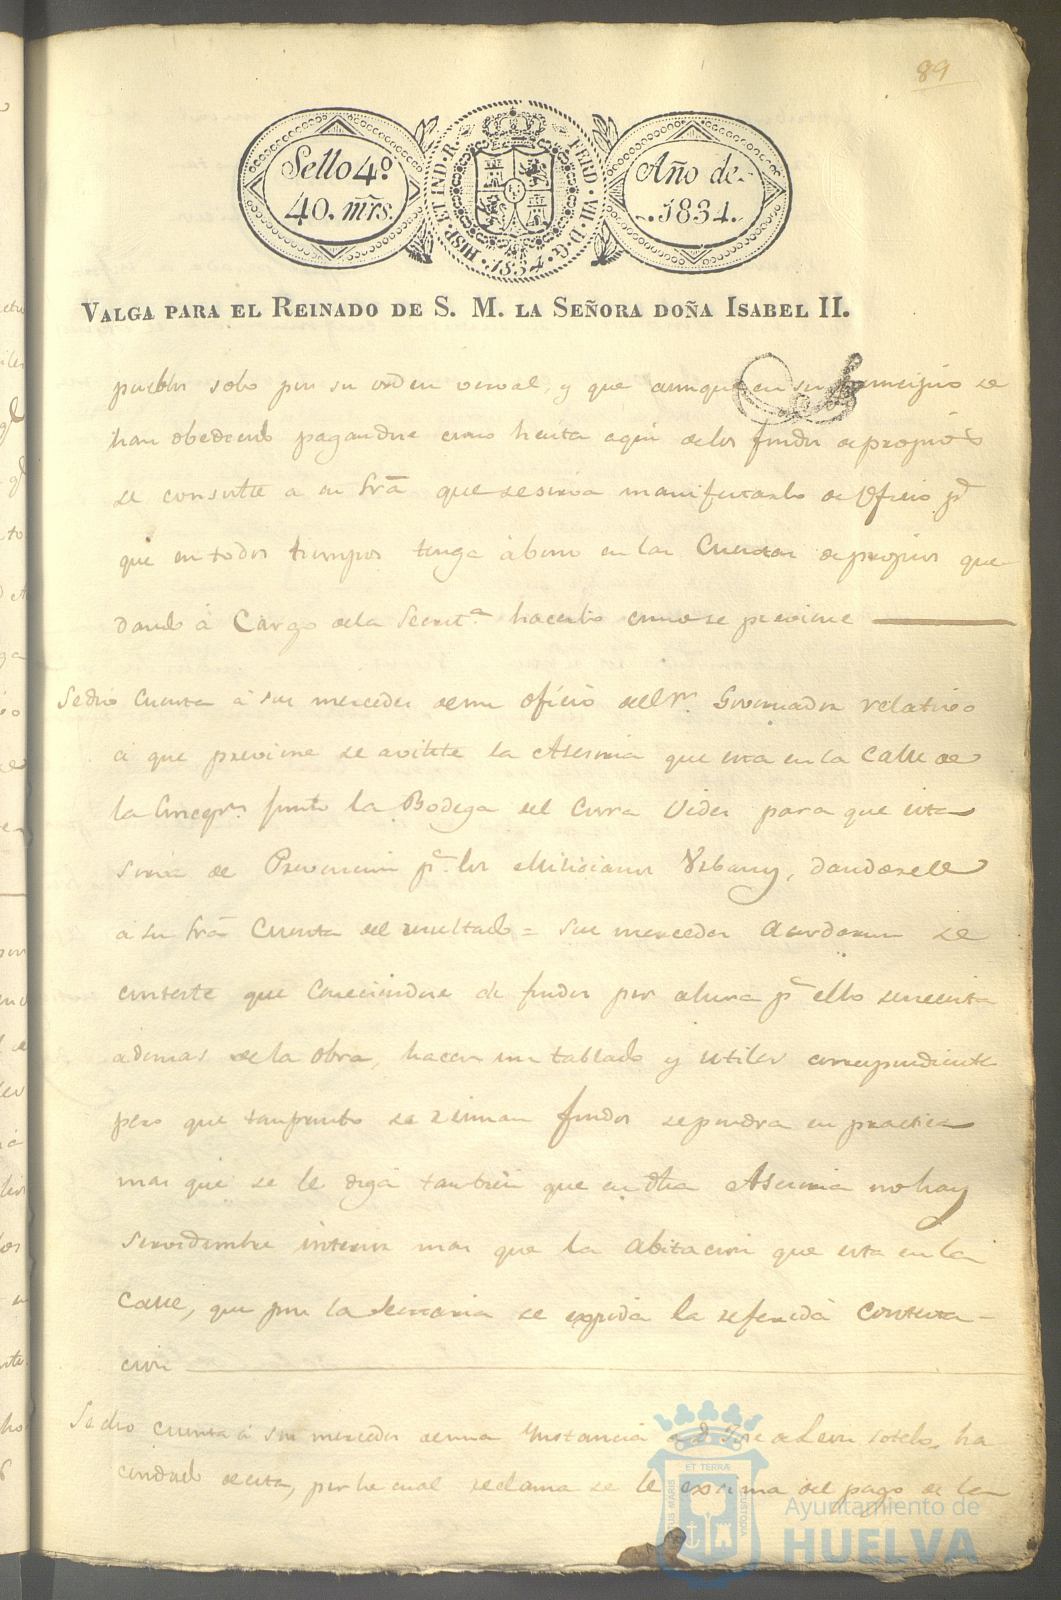 89
Sello 4º
40. mrs.
HISP. ET IND. R. FERD. VII. D. G. 1834.
Año de
1834.
VALGA PARA EL REINADO DE S. M. LA SEÑORA DOÑA ISABEL II.
pueblos solo por su orden verval, y que aunque en su principio se
han obedecido pagandose como hasta aqui de los fondos de propios
se consulte a su Sria que se sirva manifestarlo de Oficio pª
que en todos tiempos tenga abono en las Cuentas de propios que
dando á Cargo de la Secretª hacerlo como se previene
Se dio Cuenta á sus mercedes de un oficio del Sr. Governador relativo
a que previene se avilite la Asesoria que esta en la Calle de
la Concepn. junto la Bodega del Curra Vides para que esta
sirva de Prevencion pª los Milicianos Urbanos, dandosele
a su Sria Cuenta del resultado = sus mercedes acordaron se
conteste que Careciendose de fondos por ahora pª ello se necesita
ademas de la obra, hacer un tablado y utiles correspondiente
pero que tan pronto se reunan fondos se pondra en practica
mas que se le diga tambien que en dha Asesoria no hay
servidumbre interior mas que la abitacion que esta en la
Calle, que por la Secretaria se expida la referida Contesta-
cion
Se dio Cuenta á sus mercedes de una Instancia de D. Jose de Leon Sotelo, ha
cendado de esta, por la cual reclama se le exsima del pago de la
PORTUS MARIS ET TERRÆ CUSTODIA
Ayuntamiento de
HUELVA